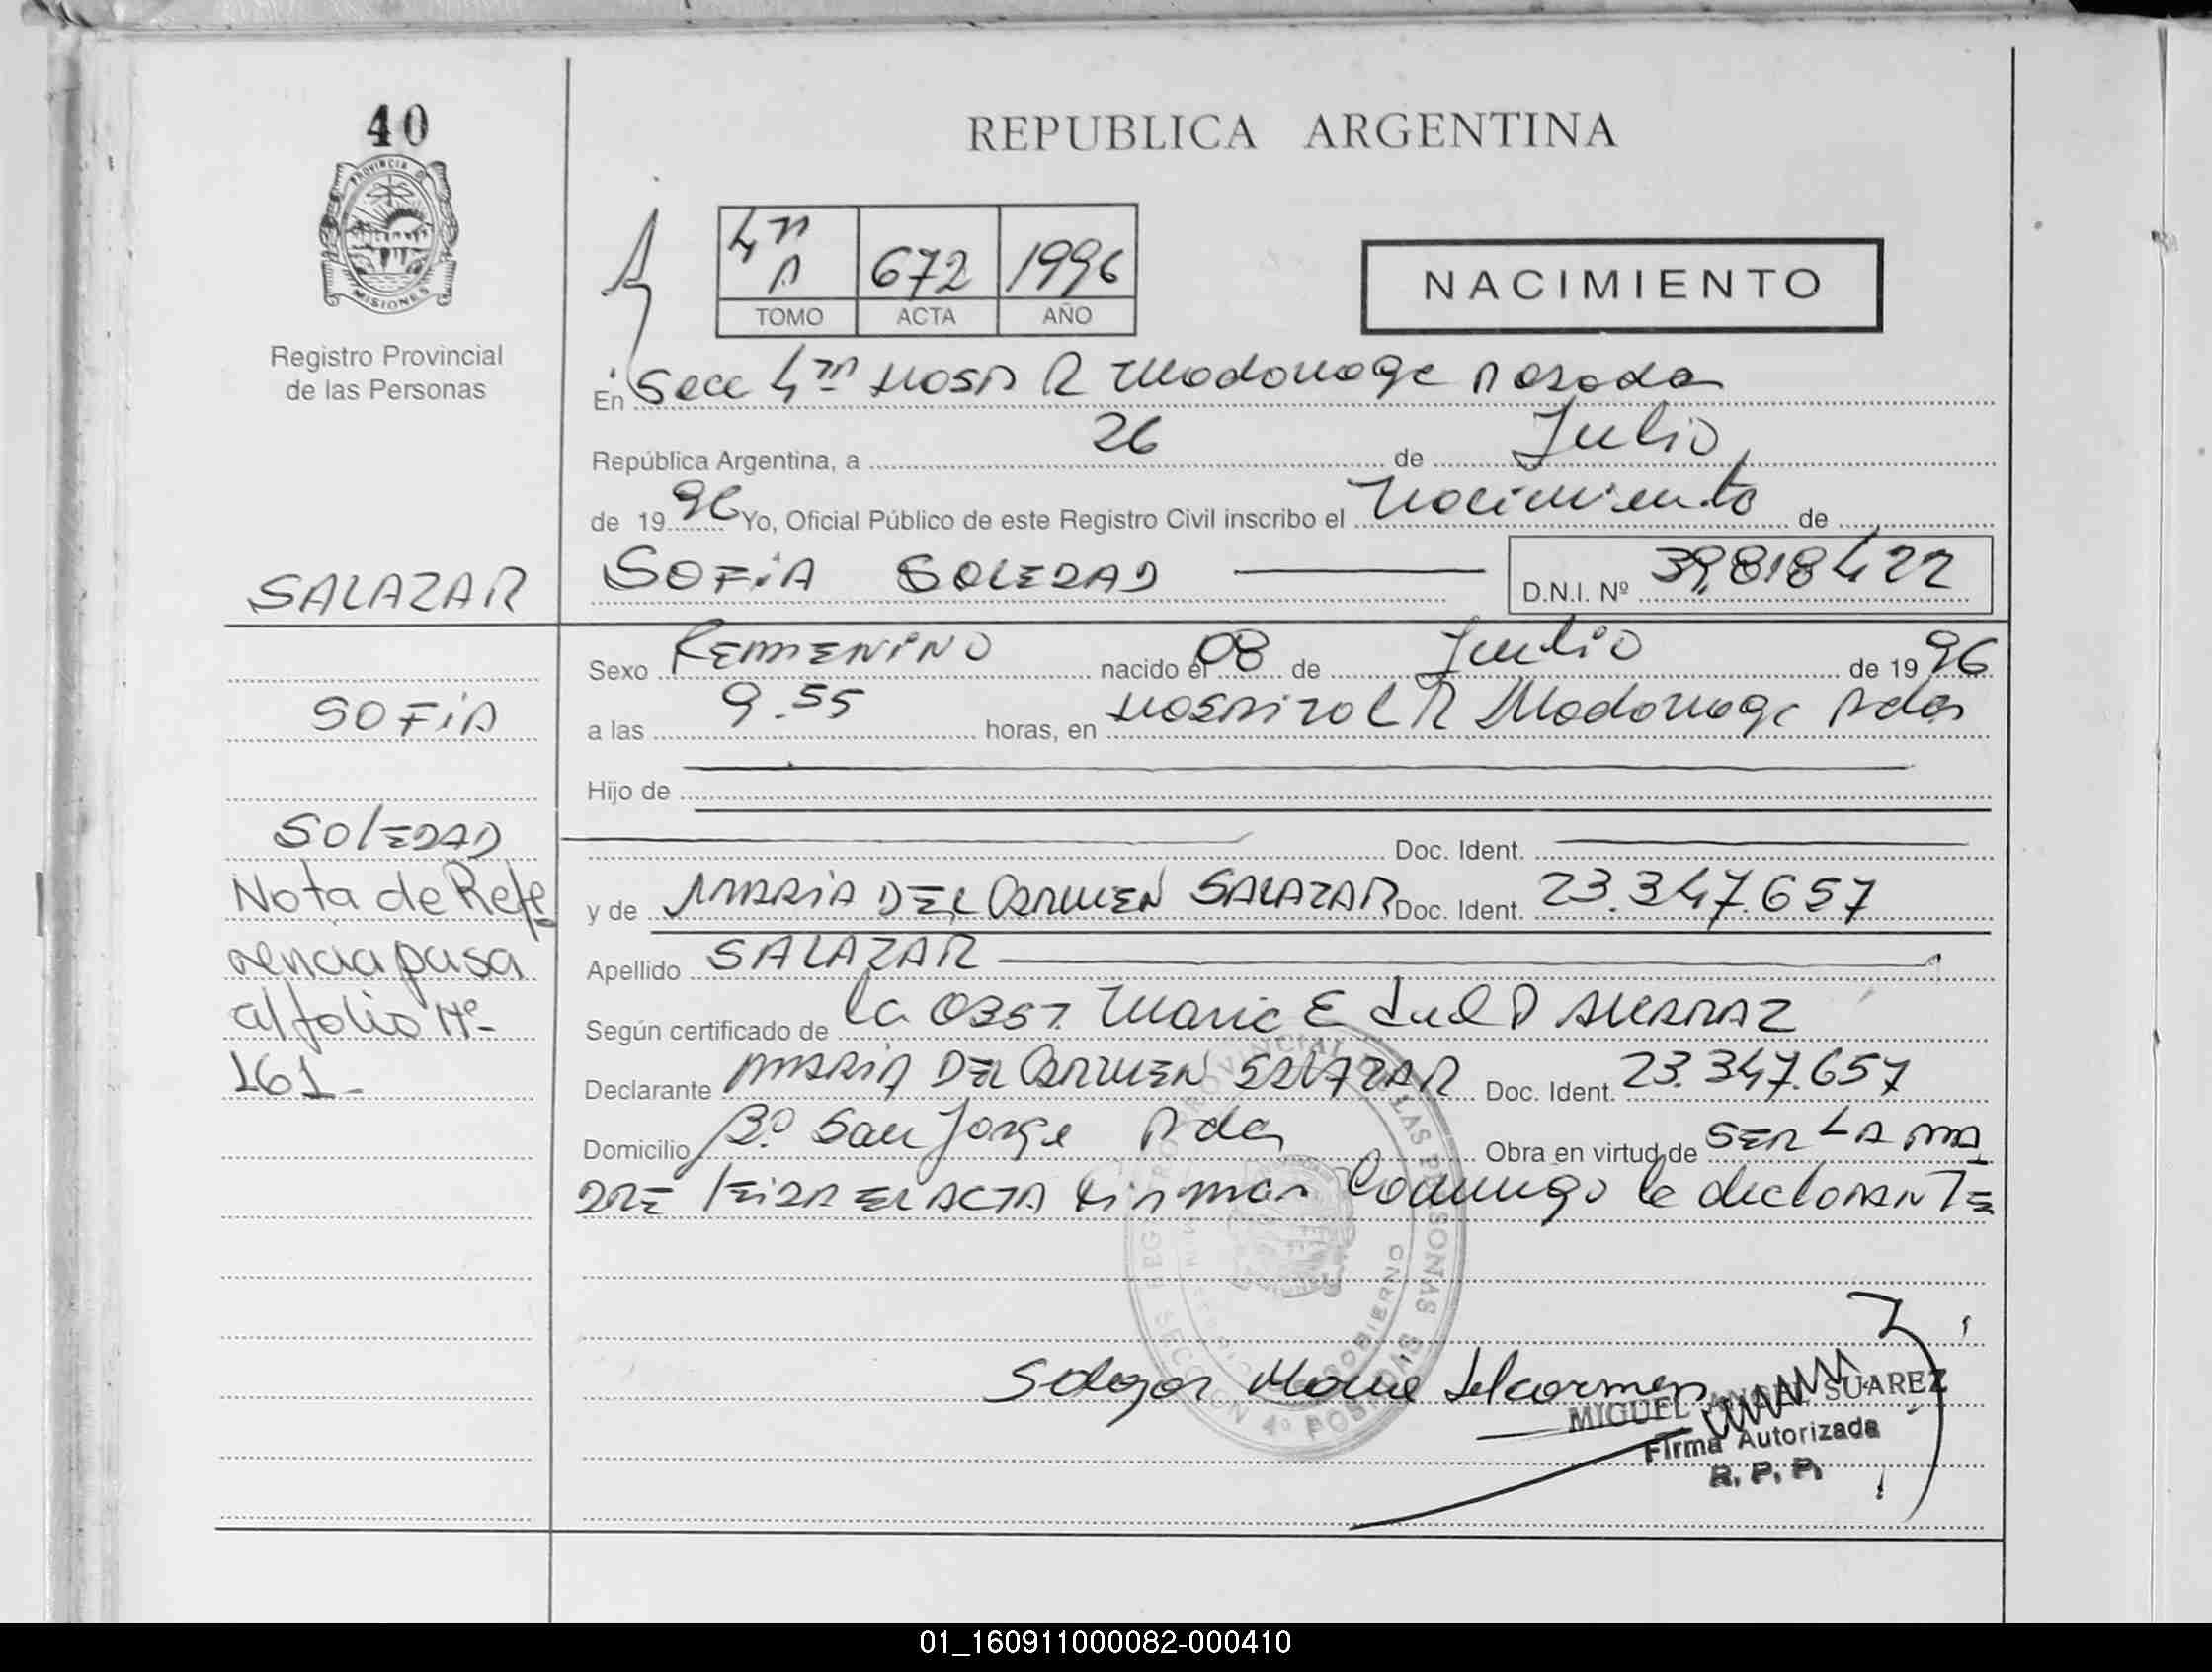 40
PROVINCIA DE
MISIONES
Registro Provincial
de las Personas
REPUBLICA ARGENTINA
4ta P 672 1996
TOMO ACTA AÑO
NACIMIENTO
En Secc 4ta Hosp R Madariaga Posadas
República Argentina, a 26 de Julio
de 1996 Yo, Oficial Público de este Registro Civil inscribo el Nacimiento de
SALAZAR
SOFiA SOLEDAD D.N.I. Nº 39818422
Sexo FEMENINO nacido el 08 de Julio de 1996
SOFiA
a las 9.55 horas, en Hospital R Madariaga Pdas
Hijo de
SOLEDAD
Doc. Ident.
Nota de Refe
y de MARiA DEL CARMEN SALAZAR Doc. Ident. 23.347.657
rencia pasa
Apellido SALAZAR
al folio Nº
Según certificado de la OBST. Maria E ALCARAZ
161-
Declarante MARiA DEL CARMEN SALAZAR Doc. Ident. 23.347.657
Domicilio Bº San Jorge Pdas Obra en virtud de SER LA MA
DRE lEiDA EL ACTA firman conmigo la declarANTE
REGISTRO PROVINCIAL DE LAS PERSONAS
SECCION 4º POSADAS
GOBIERNO
Salazar Maria del carmen
MIGUEL ANGEL SUAREZ
Firma Autorizada
R. P. P.
01_160911000082-000410